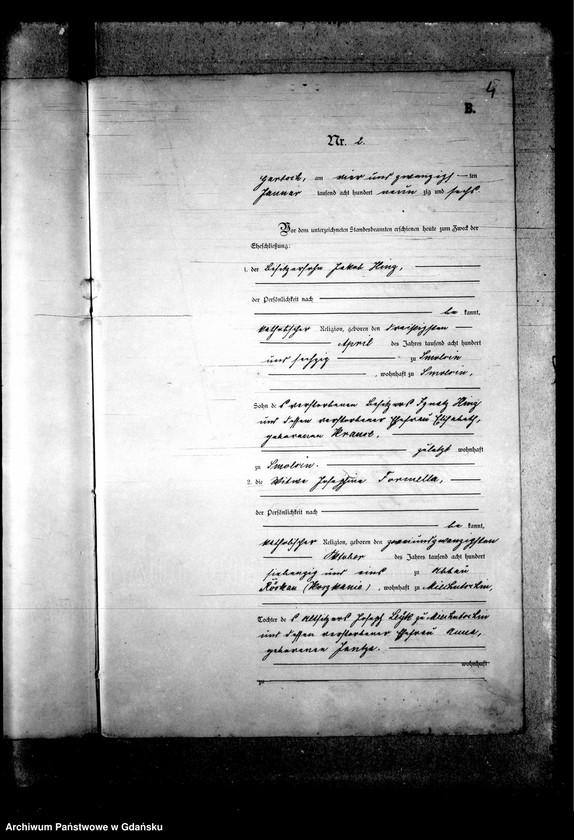 4
B.
Nr. 2.
am vier und zwanzigsten
Januar tausend acht hundert neun zig und sechs.
Vor dem unterzeichneten Standesbeamten erschienen heute zum Zweck der
Eheschließung:
1. der Besitzersohn Jakob Hinz,
der Persönlichkeit nach
be kannt,
katholischer Religion, geboren den dreißigsten
April des Jahres tausend acht hundert
und sechzig zu Smolsin
, wohnhaft zu Smolsin,
Sohn des verstorbenen Besitzers Ignatz Hinz
und dessen verstorbener Ehefrau Elisabeth,
geborenen Krause,
zuletzt wohnhaft
zu Smolsin.
2. die Witwe Josephine Formella,
der Persönlichkeit nach
be kannt,
katholischer Religion, geboren den zweiundzwanzigsten
Oktober des Jahres tausend acht hundert
siebenzig und eins zu Abbau
, wohnhaft zu
Tochter des Altsitzers Joseph zu
und dessen verstorbener Ehefrau Anna,
geborenen
wohnhaft
zu
Archiwum Państwowe w Gdańsku